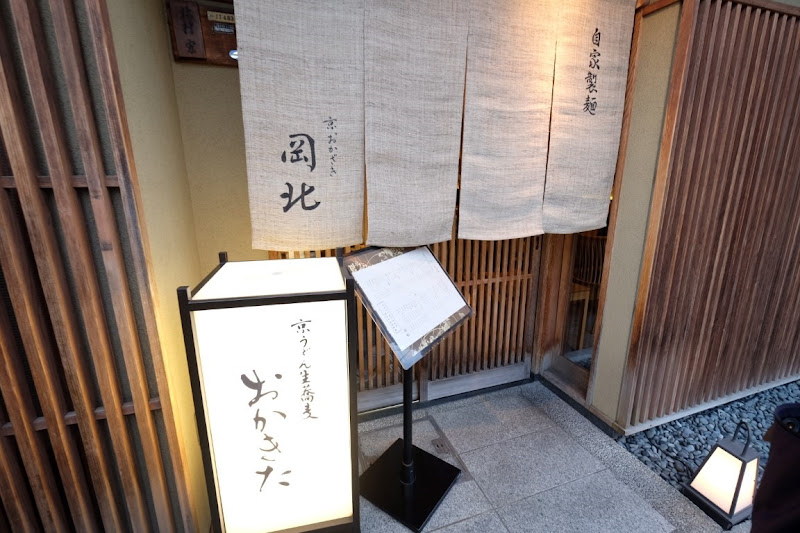 自家製麺
京おかざき
岡北
京うどん生蕎麦
おかきた